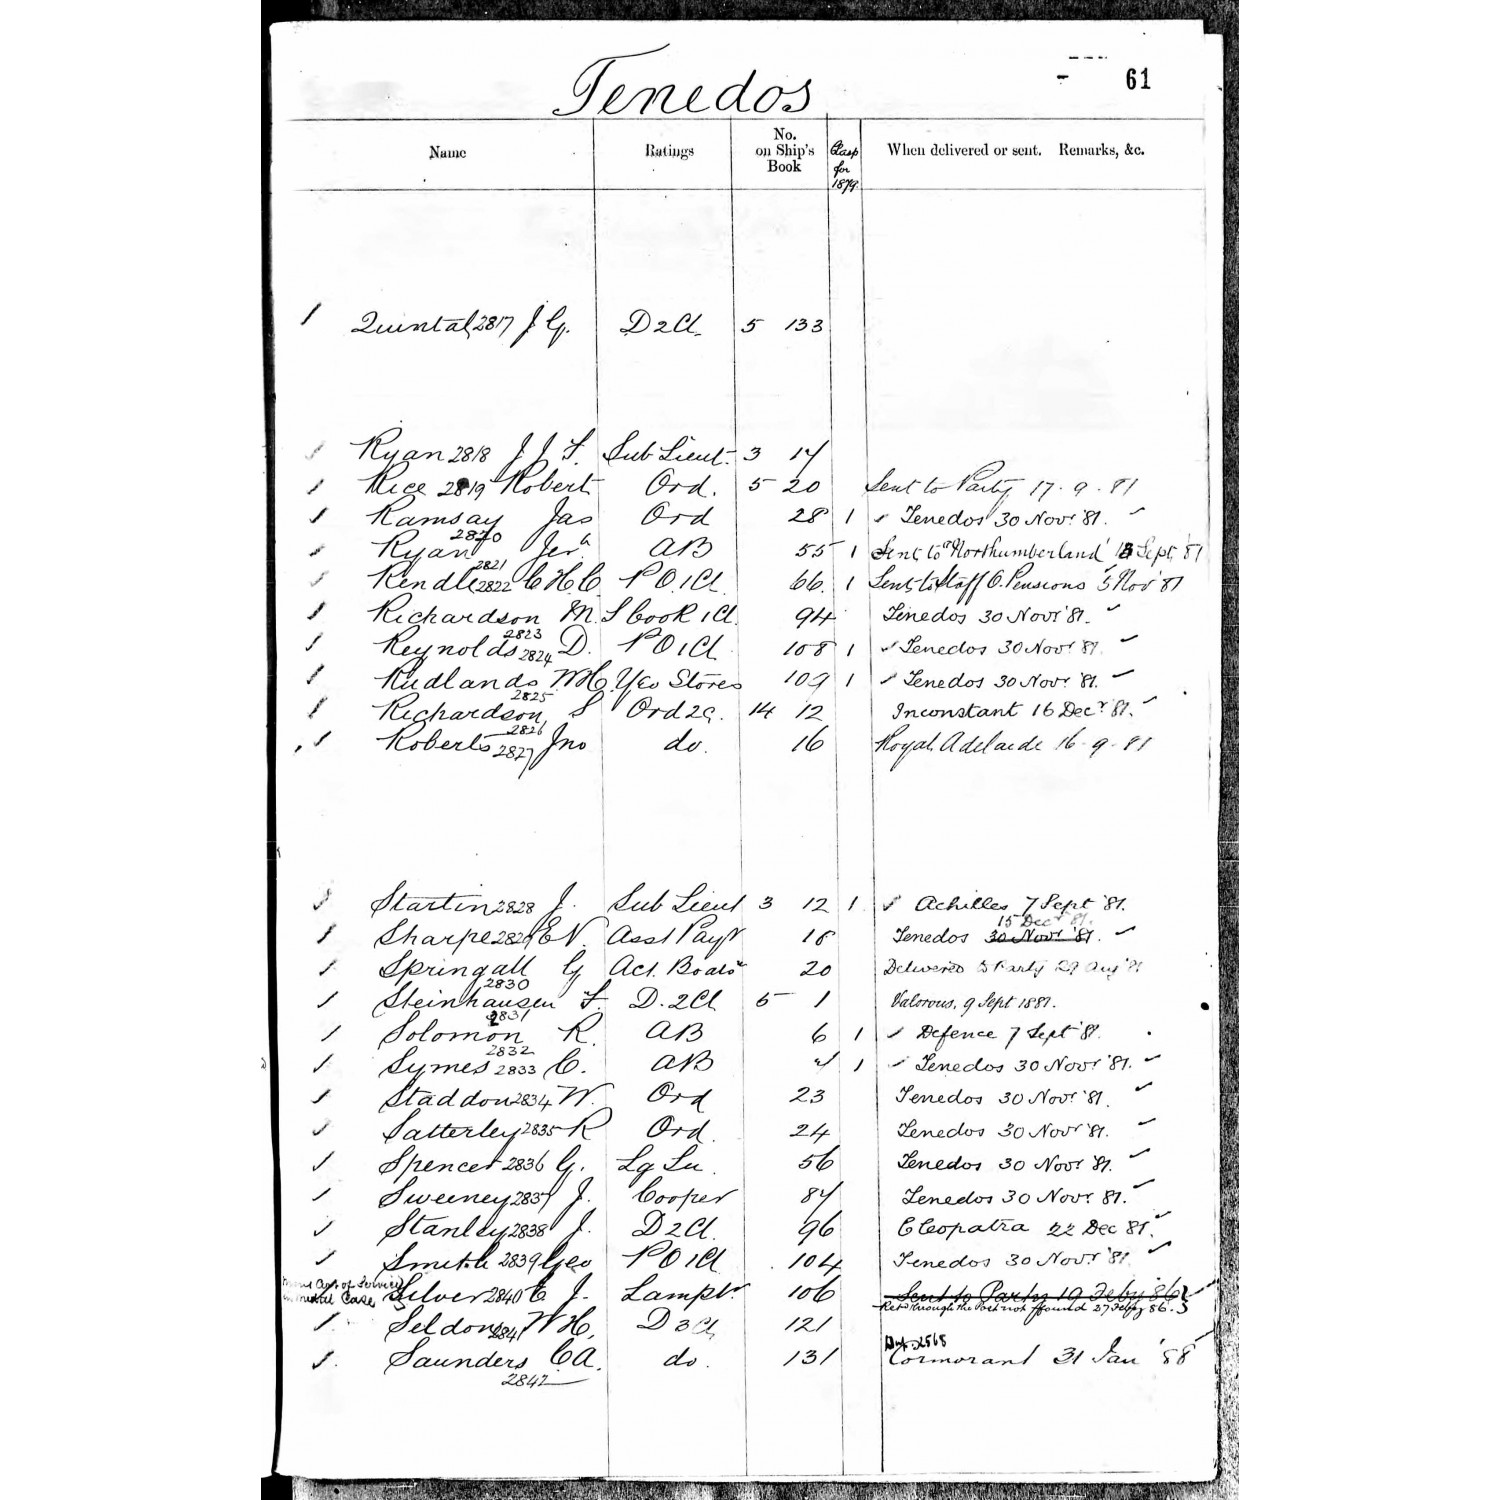 Tenedos
61
Name Ratings No. on Ship's Book Clasp for 1879. When delivered or sent. Remarks, &c.
1 Quintal 2817 J G. D 2 Cl. 5 133
1 Ryan 2818 J J F. Sub Lieut. 3 14
1 Rice 2819 Robert Ord. 5 20 Sent to Party 17.9.81
1 Ramsay Jas Ord 28 1 Tenedos 30 Novr '81.
2820
1 Ryan Jerh AB 55 1 Sent to "Northumberland" Sept '81
2821
1 Rendle 2822 C H C P O 1 Cl. 66. 1 Sent to Staff O. Pensions 5 Nov '81
1 Richardson M. S Cook 1 Cl. 94 Tenedos 30 Novr '81.
2823
1 Reynolds 2824 D. P O 1 Cl 108 1 Tenedos 30 Novr '81.
1 Rudlands W H. Yeo Stores 109 1 Tenedos 30 Novr '81.
2825
1 Richardson S Ord 2 C. 14 12 Inconstant 16 Decr '81.
2826
1 Roberts 2827 Jno do. 16 Royal Adelaide 16.9.81
1 Startin 2828 J. Sub Lieut 3 12 1 Achilles 7 Sept '81.
15 Decr '81.
1 Sharpe 2829 E V. Asst Payr 18 Tenedos 30 Novr '81.
1 Springall G Act. Boatsn 20 Delivered to Party 29 Aug '81
2830
1 Steinhausen F. D. 2 Cl 5 1 Valorous, 9 Sept 1881.
2831
1 Solomon R. AB 6 1 Defence 7 Sept '81.
2832
1 Symes 2833 C. AB 1 Tenedos 30 Novr '81.
1 Staddon 2834 W. Ord 23 Tenedos 30 Novr '81.
1 Satterley 2835 R Ord. 24 Tenedos 30 Novr '81.
1 Spencer 2836 G. Lg Se. 56 Tenedos 30 Novr '81.
1 Sweeney 2837 J. Cooper 84 Tenedos 30 Novr. 81.
1 Stanley 2838 J. D 2 Cl. 96 Cleopatra 22 Dec 81.
1 Smith 2839 Geo P O 1 Cl 104 Tenedos 30 Novr. '81.
of Service in medal Case Silver 2840 C J. Lampr. 106 Sent to Party 19 Feby '86
Retd through the Post not found 27 Feby 86.
1 Seldon 2841 W H, D 3 Cl, 121
Dup. 2868
1 Saunders C A. do. 131 Cormorant 31 Jan '88
2842